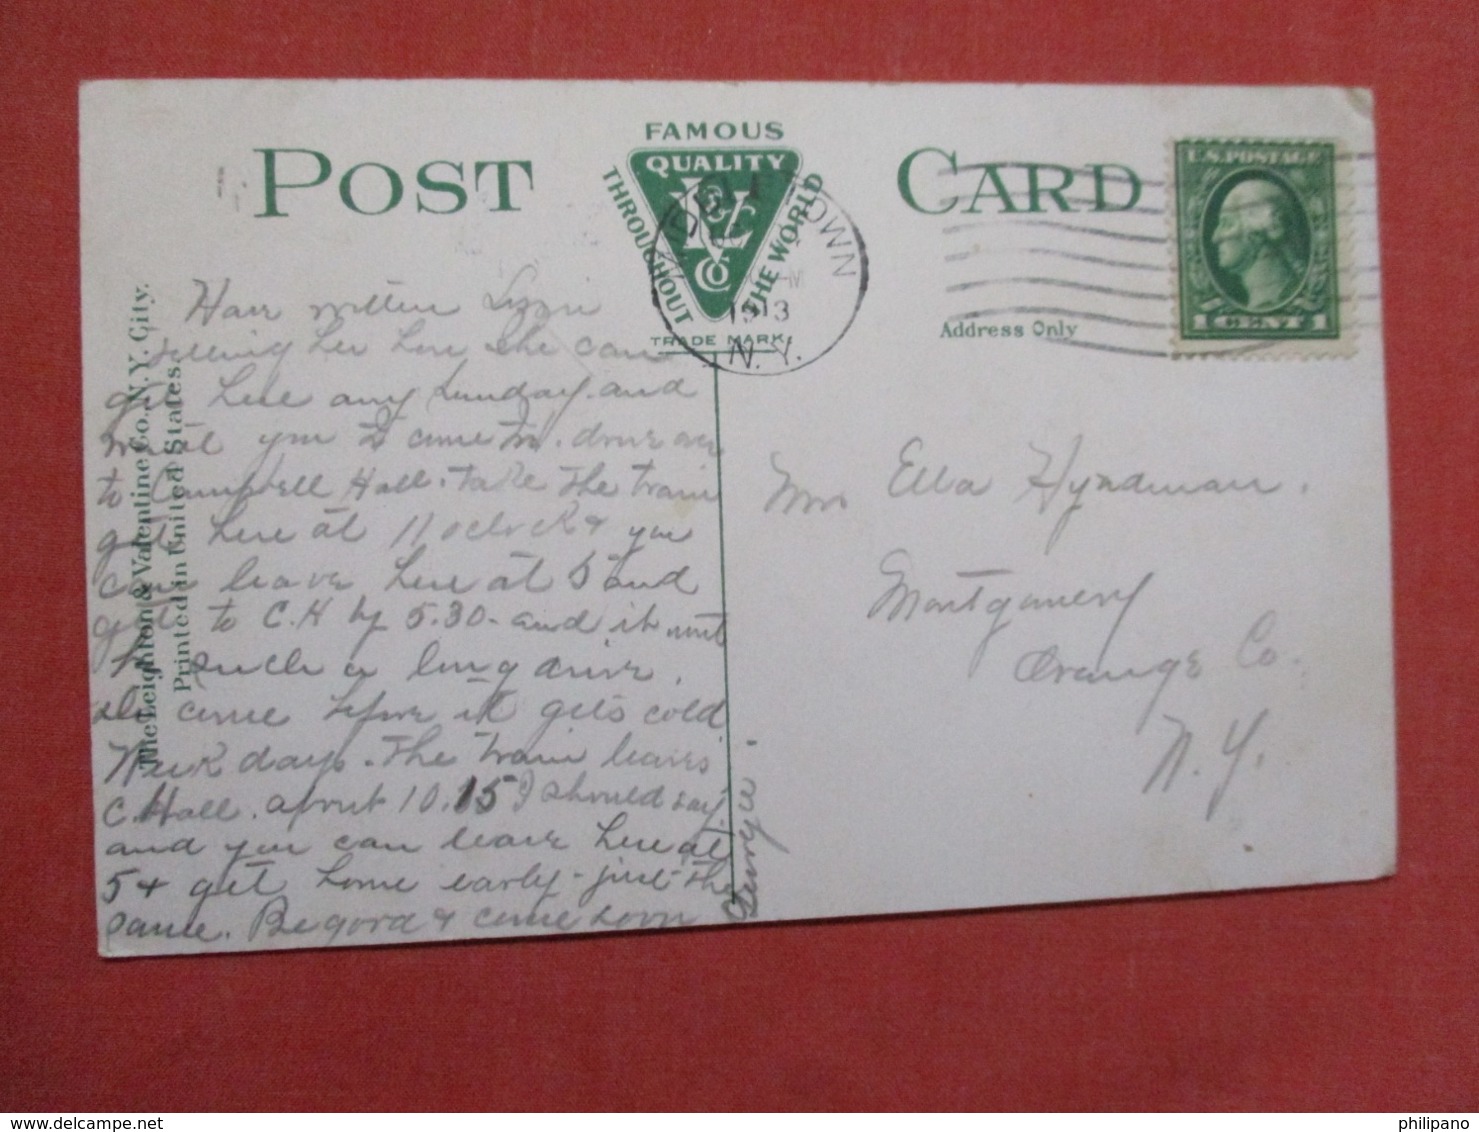 POST CARD
FAMOUS
QUALITY
THROUGHOUT
THE WORLD
L&V
Co
TRADE MARK
TOWN
M
1913
N.Y.
U.S. POSTAGE
1 CENT 1
Address Only
The Leighton & Valentine Co., N.Y. City.
Printed in United States.
Have written Lizzie
telling her how she can
get here any Sunday. and
want you to come too. drive over
to Campbell Hall. take the train
get here at 11 oclock & you
can leave here at 5 and
get to C.H by 5.30 - and it not
be such a long drive.
do come before it gets cold
Week days. The train leaves
C. Hall. about 10.15 I should say.
and you can leave here at
5 & get home early - just the
same. Be good & come soon
Mrs Ella Hyndman.
Montgomery
Orange Co.
N.Y.
philipano